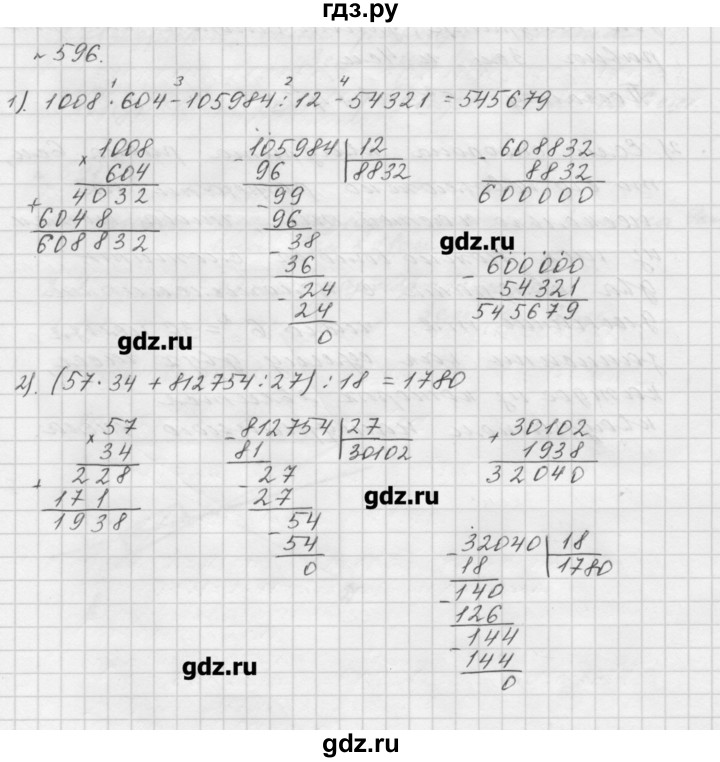 гдз.ру
№ 596.
1). 1008 · 604 - 105984 : 12 - 54321 = 545679
1 3 2 4
× 1008
604
+ 4032
6048
608832
- 105984 | 12
96 8832
- 99
96
- 38
36
- 24
24
0
- 608832
8832
600000
- 600000
54321
545679
gdz.ru
gdz.ru
2). (57 · 34 + 812754 : 27) : 18 = 1780
× 57
34
+ 228
171
1938
- 812754 | 27
81 30102
- 27
27
- 54
54
0
+ 30102
1938
32040
gdz.ru
- 32040 | 18
18 1780
- 140
126
- 144
144
0
gdz.ru
gdz.ru